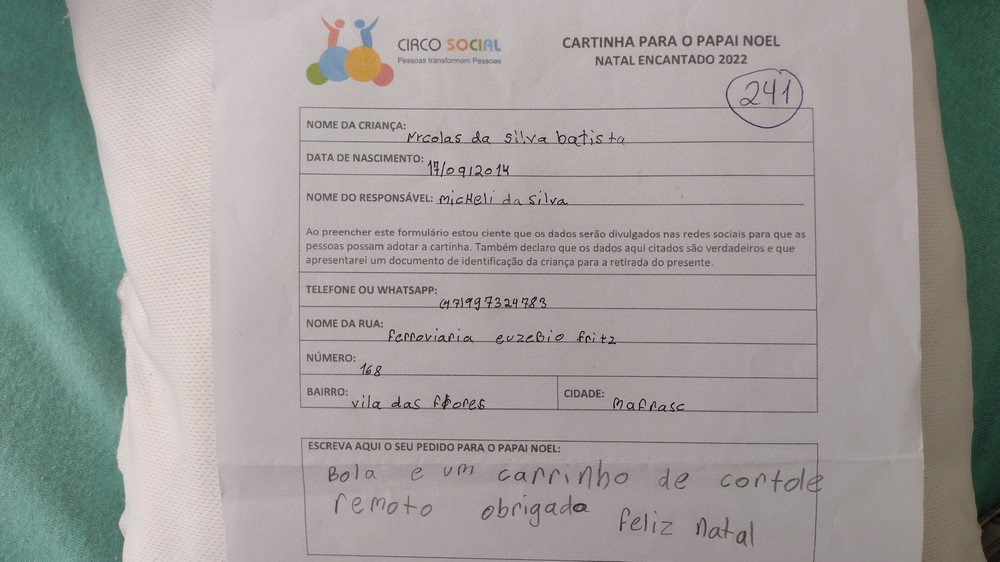 CIRCO SOCIAL
Pessoas transformam Pessoas
CARTINHA PARA O PAPAI NOEL
NATAL ENCANTADO 2022
241
NOME DA CRIANÇA: Nrcolas da silva batista
DATA DE NASCIMENTO: 17/09/2014
NOME DO RESPONSÁVEL: micHeli da silva
Ao preencher este formulário estou ciente que os dados serão divulgados nas redes sociais para que as
pessoas possam adotar a cartinha. Também declaro que os dados aqui citados são verdadeiros e que
apresentarei um documento de identificação da criança para a retirada do presente.
TELEFONE OU WHATSAPP: (47)997324783
NOME DA RUA: ferroviaria euzebio fritz
NÚMERO: 168
BAIRRO: vila das flores
CIDADE: mafrasc
ESCREVA AQUI O SEU PEDIDO PARA O PAPAI NOEL:
Bola e um carrinho de contole
remoto obrigada feliz natal